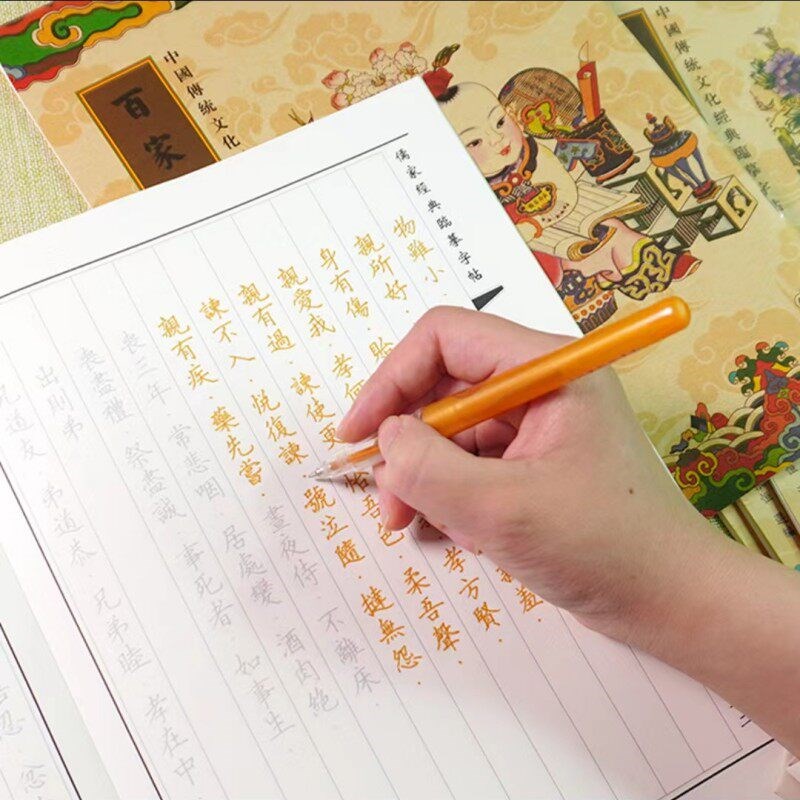 中國傳統文化
百家
中國傳統文化經典臨摹字
儒家經典臨摹字帖
物雖小
親所好
身有傷 · 貽 羞 ·
親愛我 · 孝何 孝方賢 ·
親有過 · 諫使更 怡吾色 · 柔吾聲 ·
諫不入 · 悅復諫 · 號泣隨 · 撻無怨 ·
親有疾 · 藥先嘗 · 晝夜侍 · 不離床 ·
喪三年 · 常悲咽 · 居處變 · 酒肉絕 ·
喪盡禮 · 祭盡誠 · 事死者 · 如事生 ·
出則弟
兄道友 · 弟道恭 · 兄弟睦 · 孝在中 ·
忍 · 忿